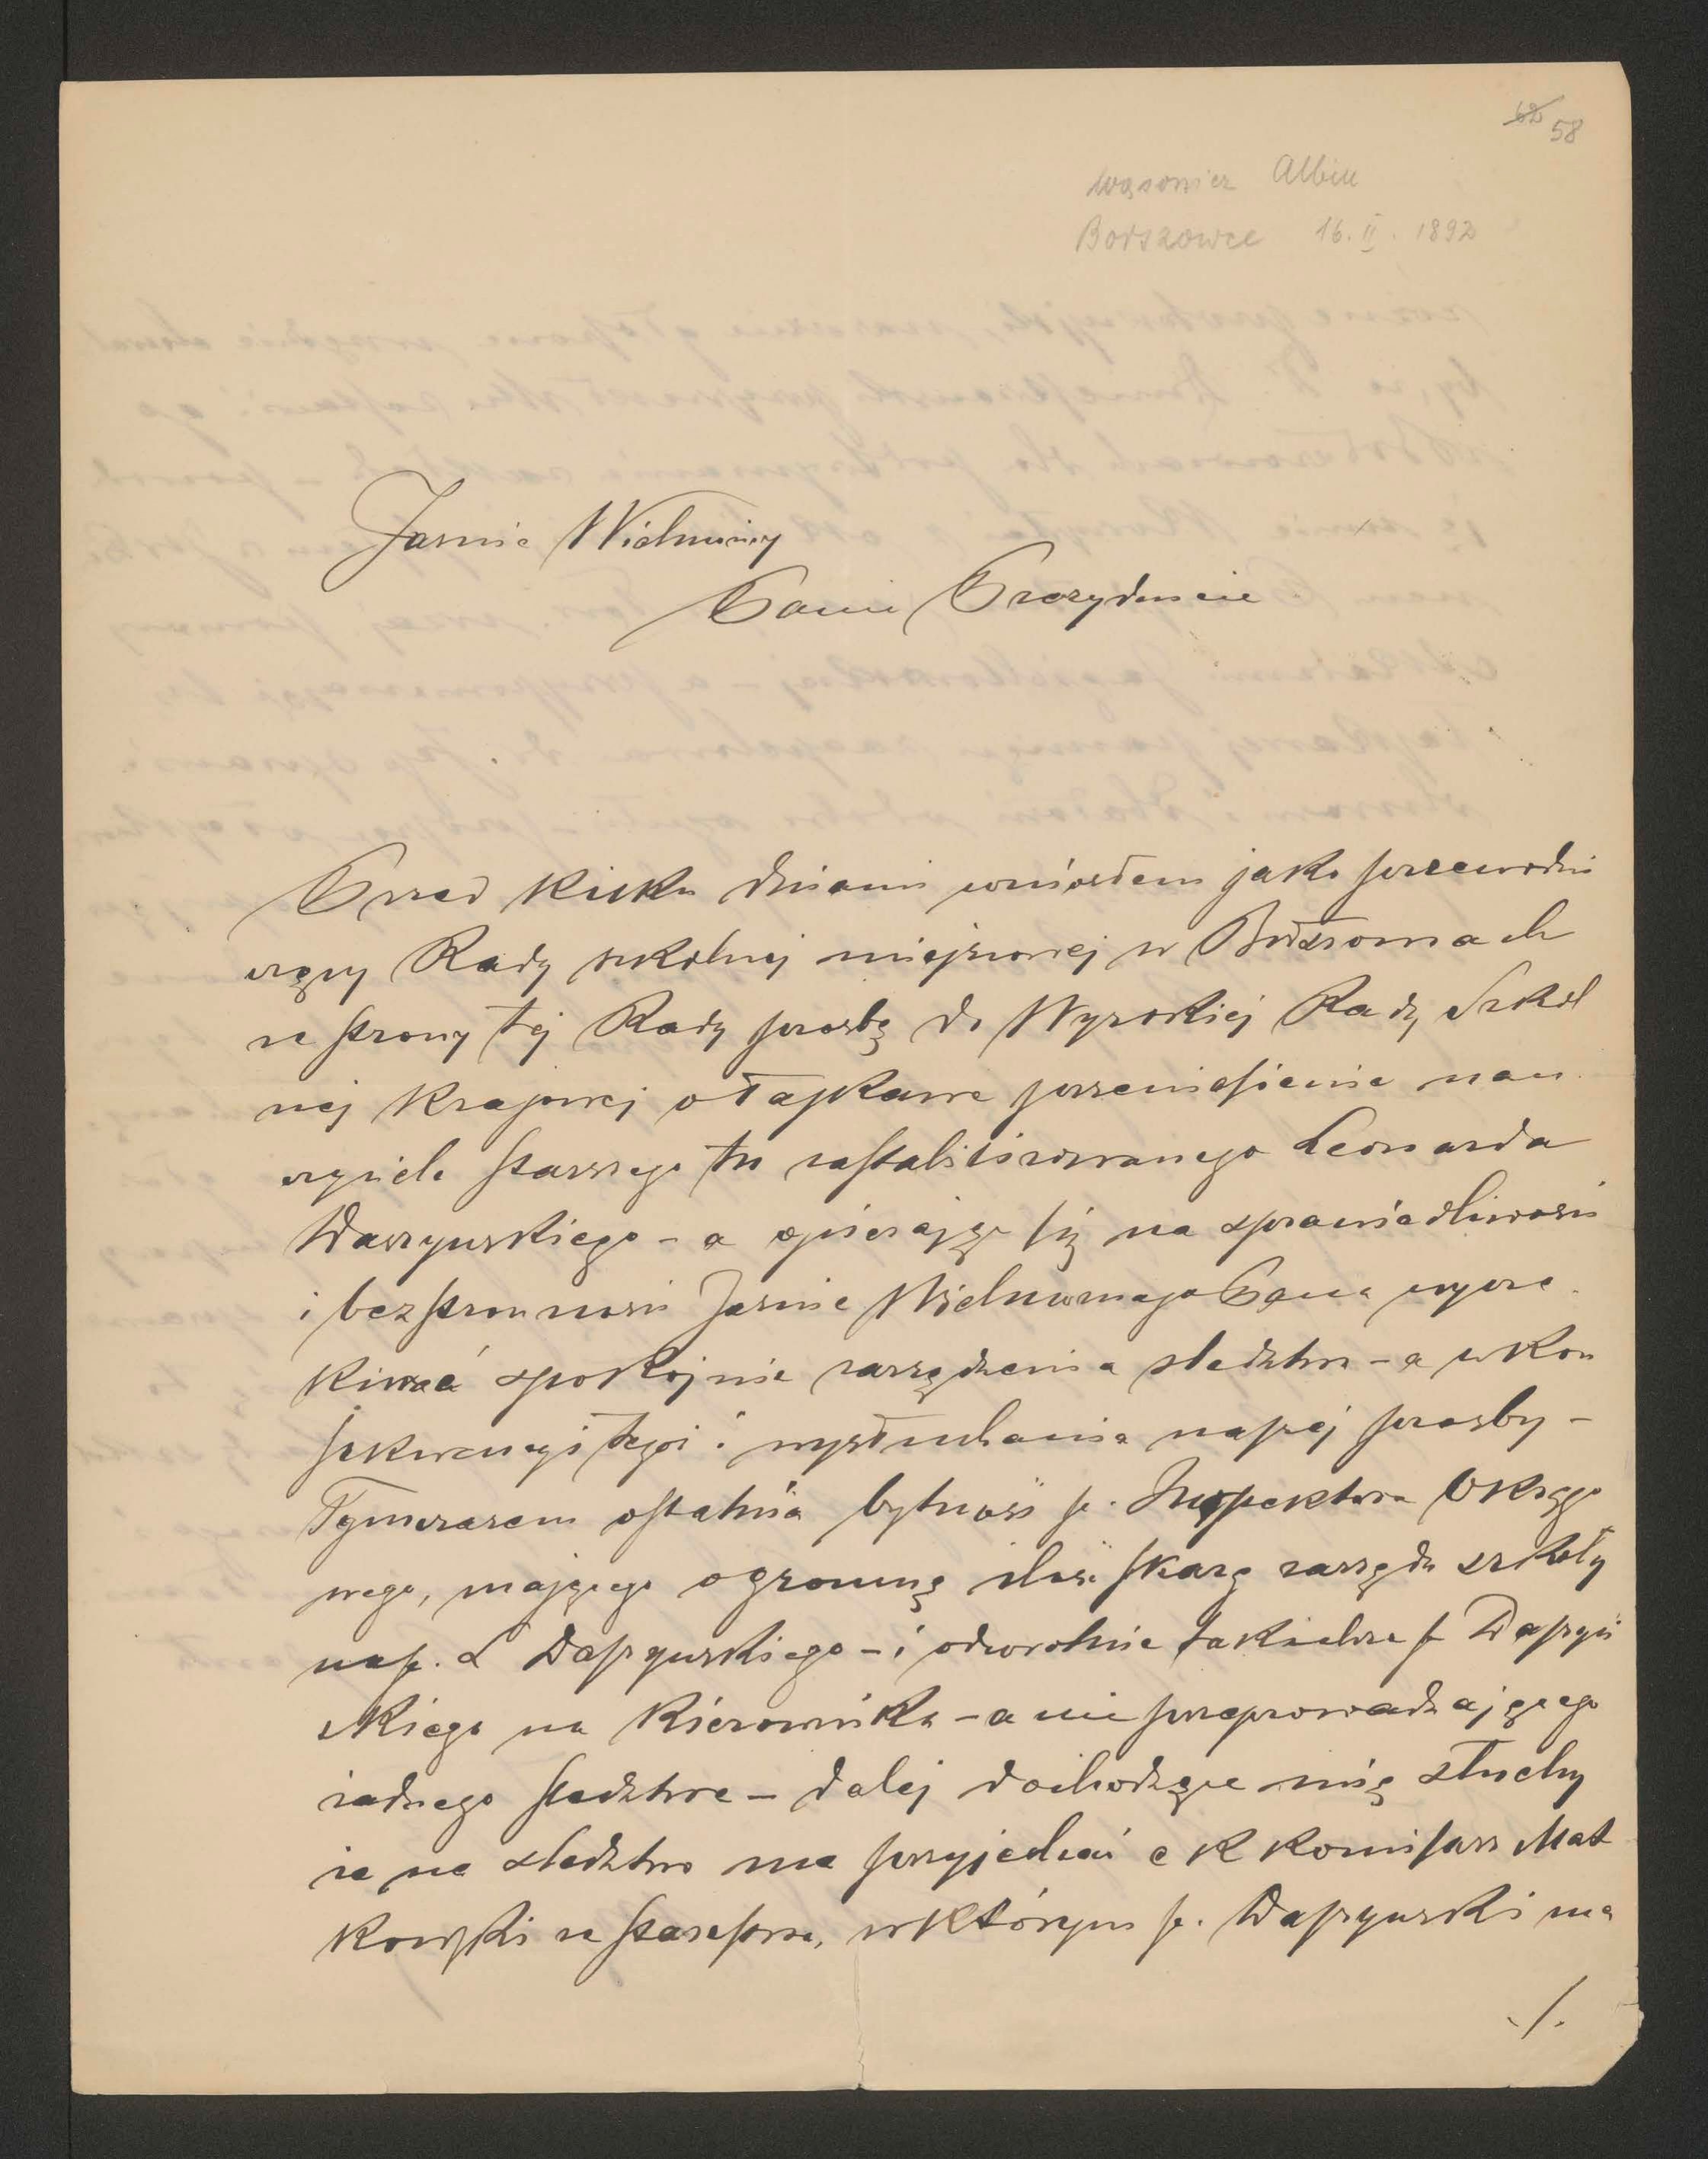 62 58
Wąsowicz Albin
Borszowce 16.II.1892
Jaśnie Wielmożny
Panie Prezydencie
Przed kilku dniami wniosłem jako przewodni
czący Rady szkolnej miejscowej w
ze strony tej Rady prośbę do Wysokiej Rady Szkol
nej Krajowej o łaskawe przeniesienie nau
czyciela starszego tu zastabilizowanego Leonarda
Daszyńskiego – a opierając się na sprawiedliwości
i bezstronności Jaśnie Wielmożnego Pana wycze
kiwać spokojnie zarządzenia śledztwa – a w kon
sekwencyi tegoż i wysłuchania naszej prośby –
Tymczasem ostatnia bytność p. Inspektora Okręgo
wego, mającego ogromną ilość skarg zarządu szkoły
na p. L Daszyńskiego – i odwrotnie takichże p Daszyń
skiego na Kierownika – a nie przeprowadzającego
żadnego śledztwa – dalej dochodzące mię słuchy
że na śledztwo ma przyjechać c k komisarz Mat
kowski ze starostwa, w którym p. Daszyński ma
./.